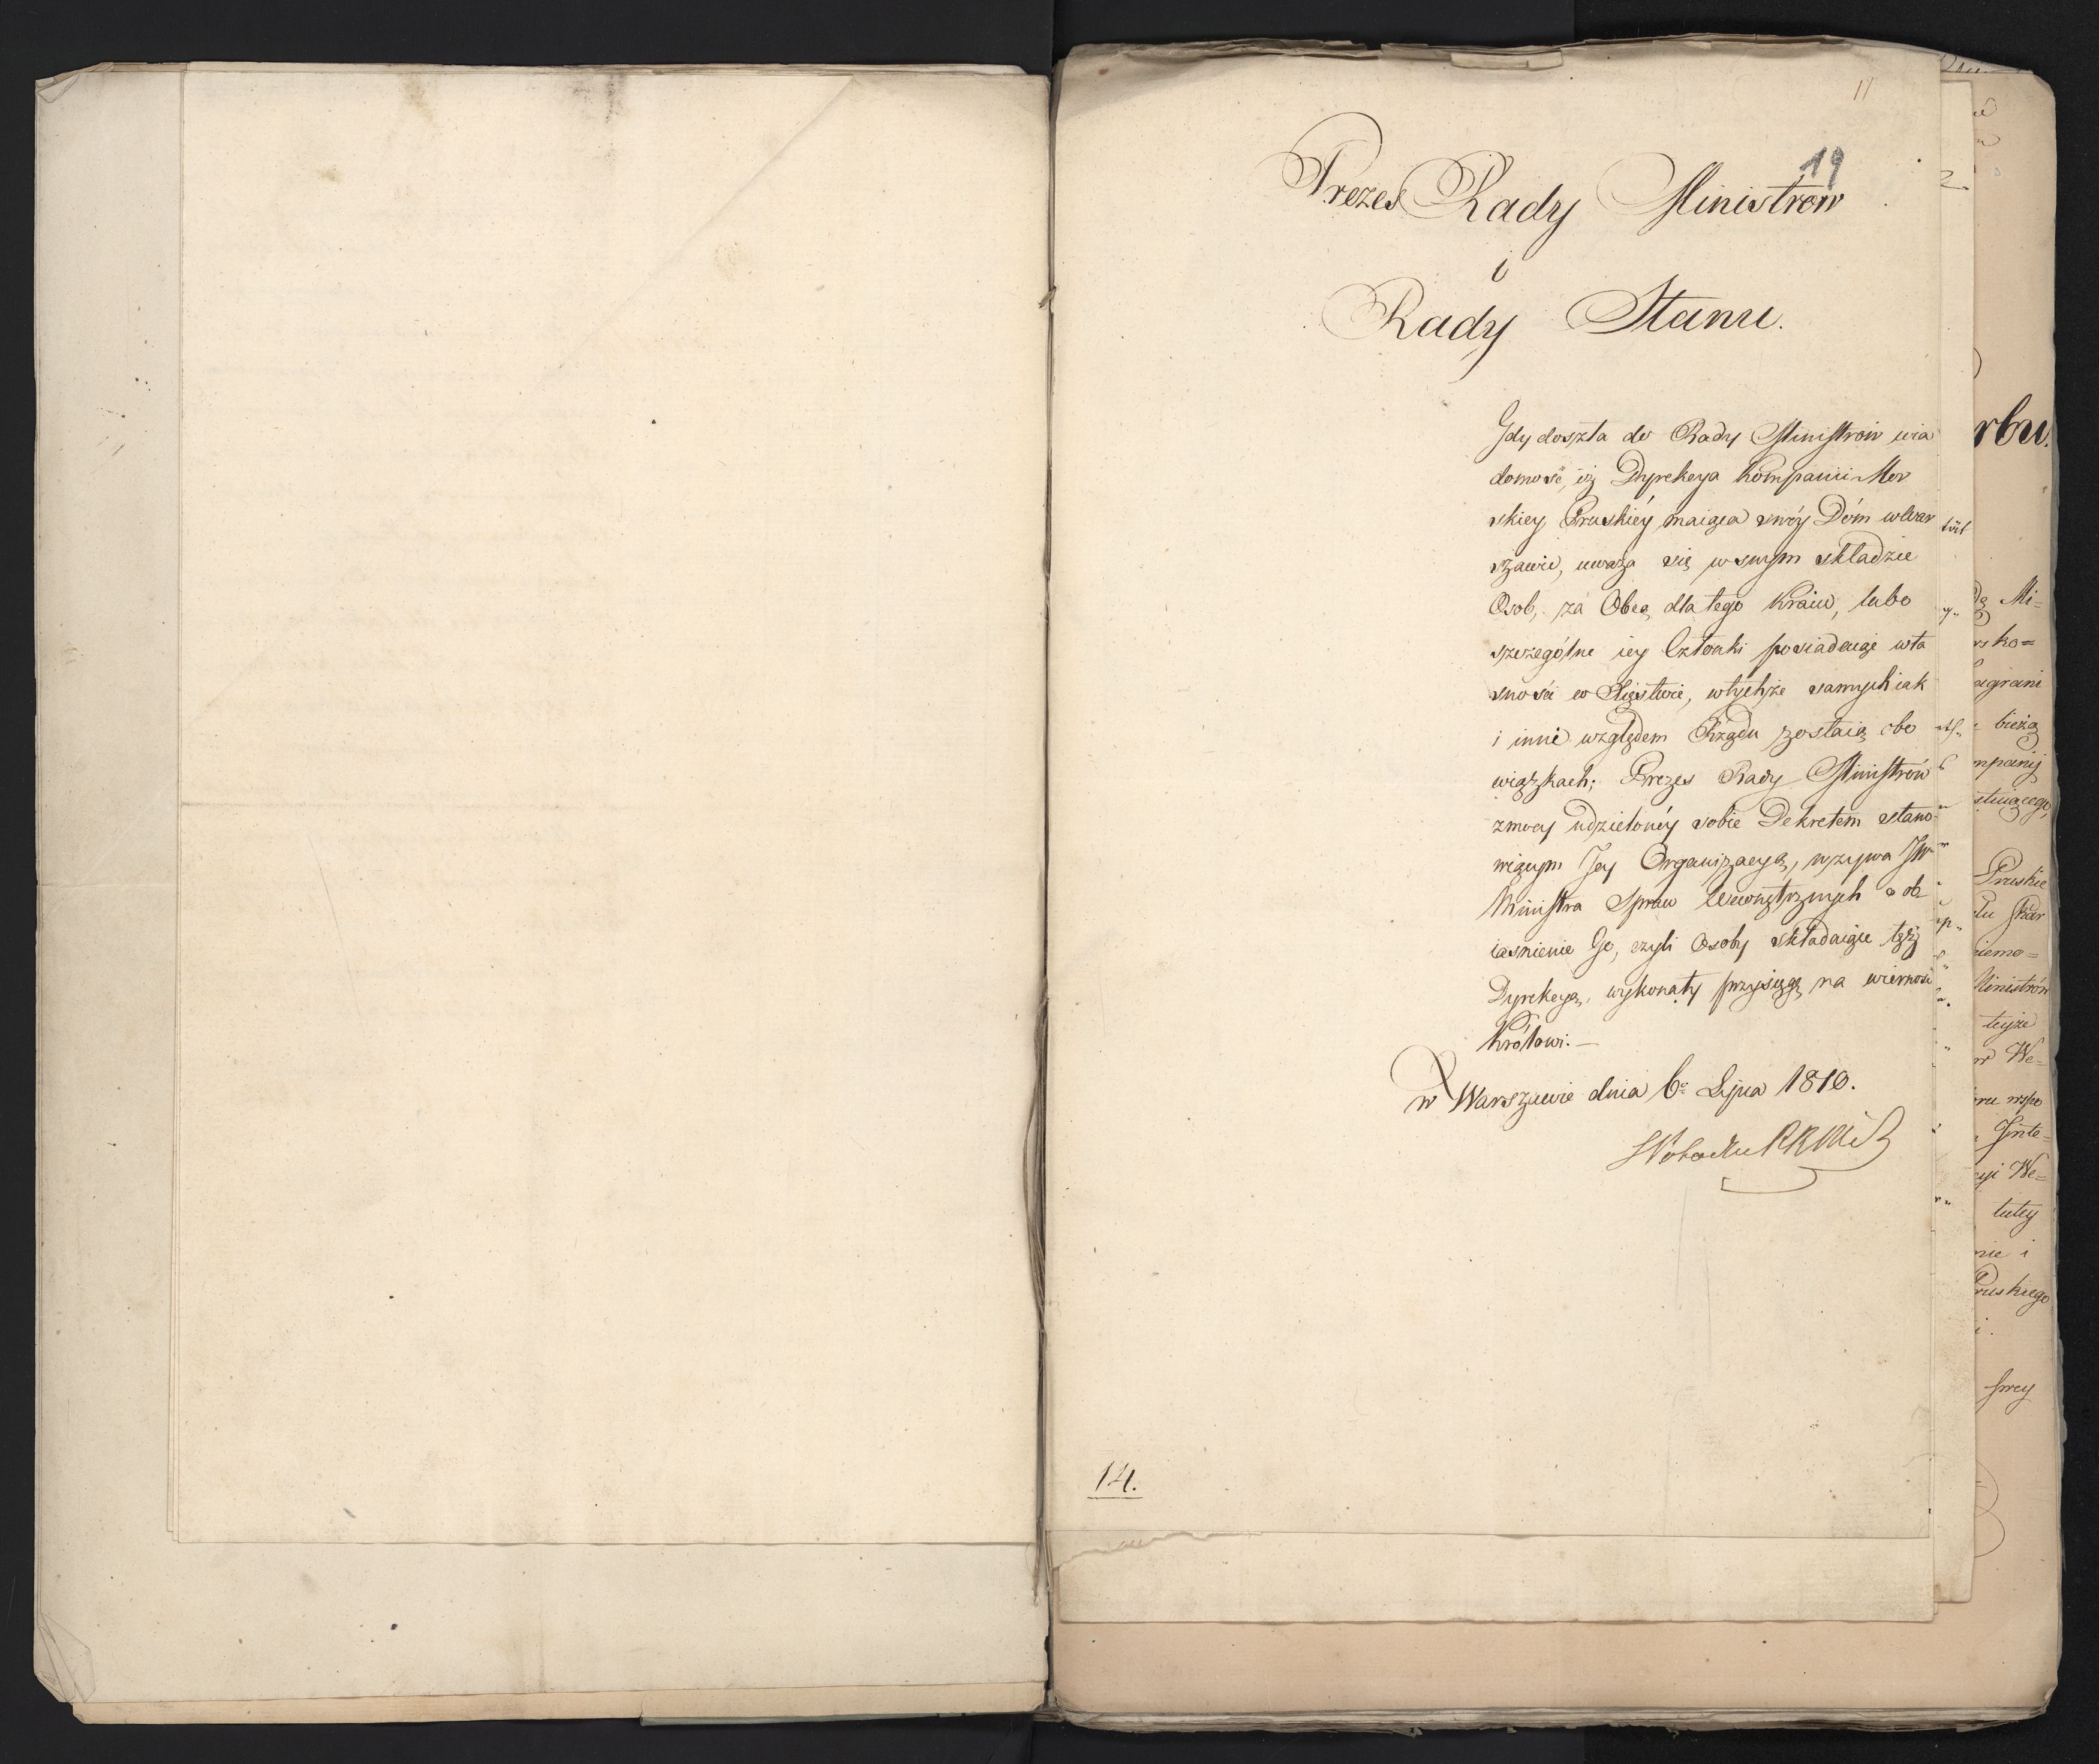 11
19
Prezes Rady Ministrow
i
Rady Stanu.
Gdy doszła do Rady Ministrów wia
domość, iż Dyrekcya Kompanii Mor
skiey Pruskiéy maiąca swóy Dóm w War
szawie, uważa się w swym składzie
Osob, za Obcą dla tego Kraiu, lubo
szczególne iey Członki posiadaiąc wła
sności w Xięstwie, w tychże samych iak
i inni względem Rządu zostaią obo
wiązkach; Prezes Rady Ministrów
z mocy udzielonéy sobie Dekretem stano
wiącym Jey Organizacyą, wzywa JW
Ministra Spraw Wewnętrznych o ob
iaśnienie Go, czyli Osoby składaiące tęż
Dyrekcyą, wykonały przysięgę na wierność
Królowi. —
w Warszawie dnia 6º Lipca 1810.
14.
rbu.
Mi=
sko=
agrani
bieżą
mpanij
Pruskie
Skar
iemo=
Ministrów
teyże
w We=
wspo
Inte=
cyi We=
tutey
nie i
Pruskiego
swey